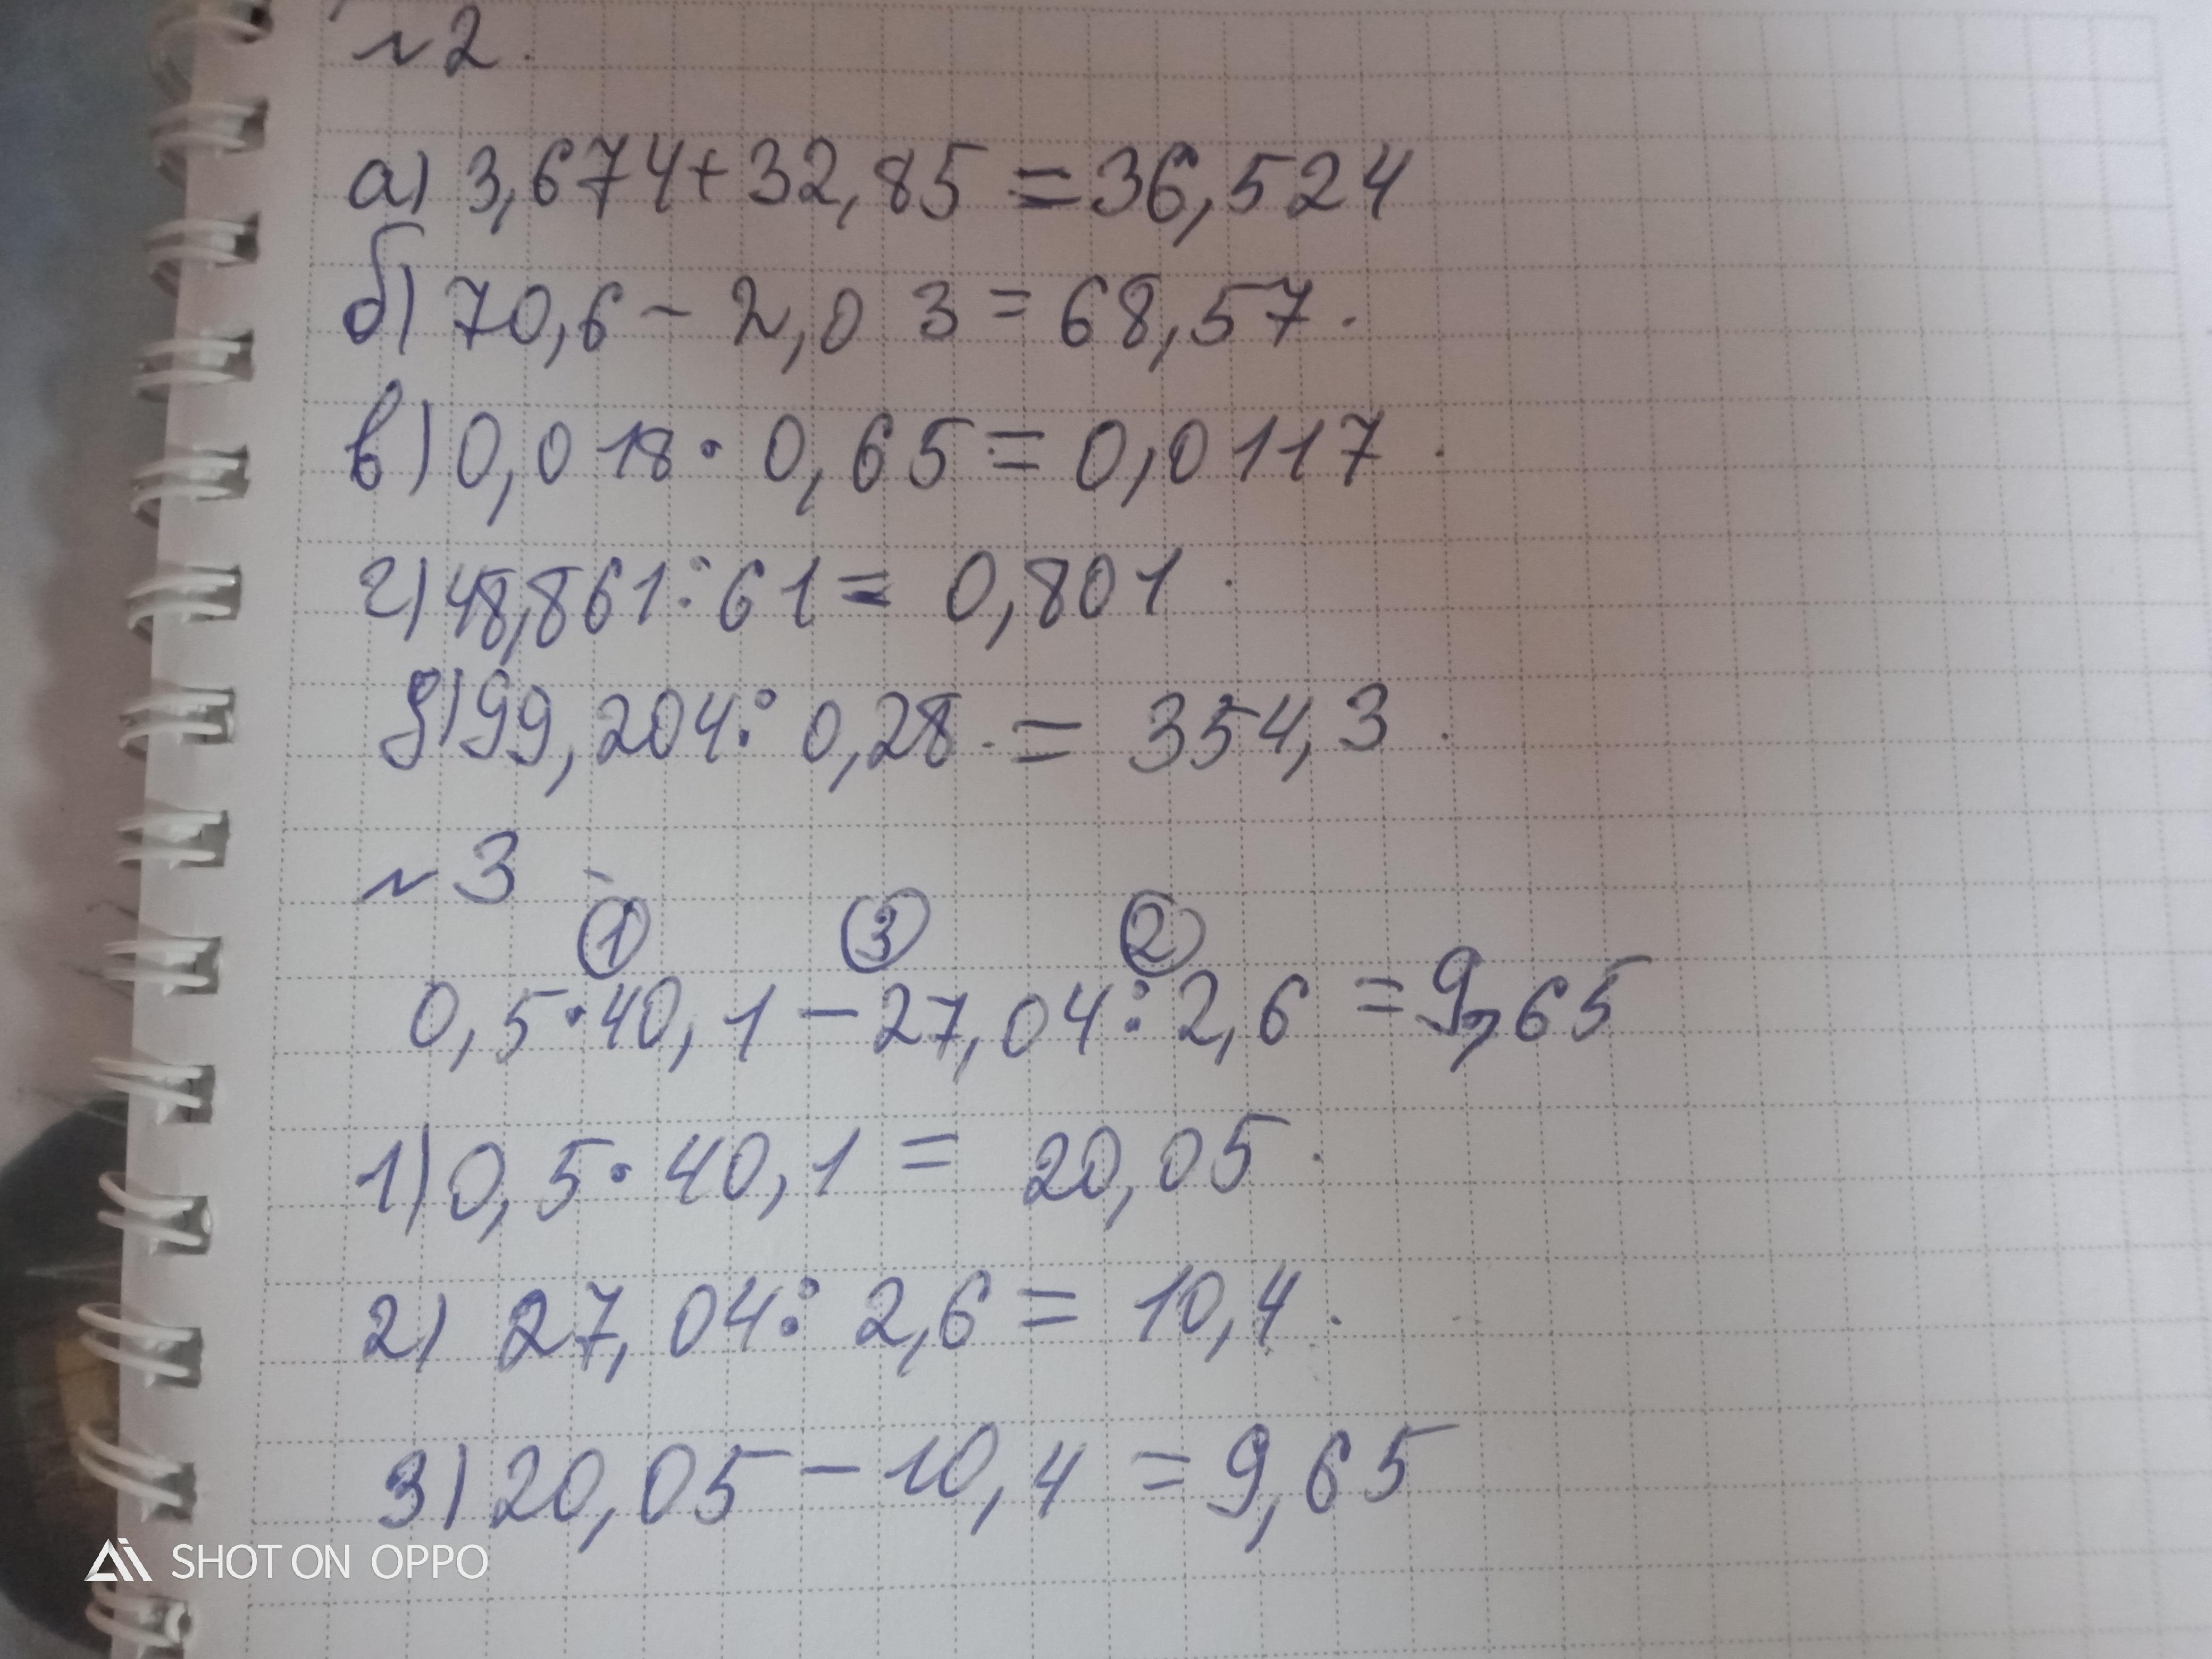 №2.
а) 3,674+32,85=36,524
б) 70,6-2,03=68,57.
в) 0,018·0,65=0,0117.
г) 48,861:61=0,801.
д) 99,204:0,28.=354,3.
№3
1 3 2
0,5·40,1-27,04:2,6=9,65
1) 0,5·40,1=20,05.
2) 27,04:2,6=10,4.
3) 20,05-10,4=9,65
Ai SHOT ON OPPO